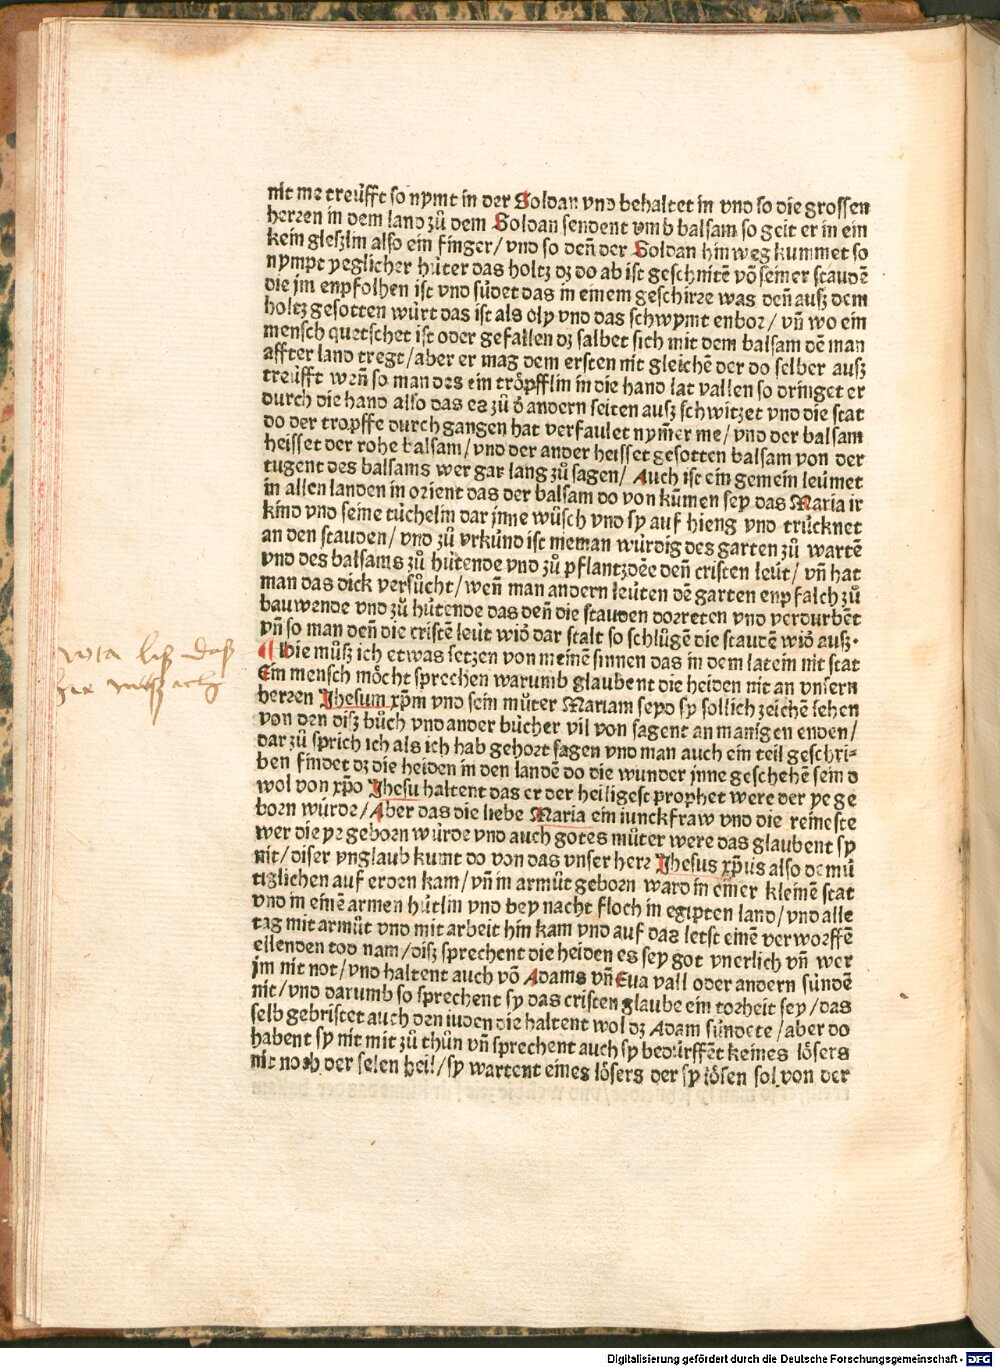 nit me treüfft so nymt in der Soldan vnd behaltet in vnd so die grossen
herren in dem land zů dem Soldan sendent vmb balsam so geit er in ein
kein gleßlin also ein finger/vnd so den̄ der Soldan hinweg kummet so
nympt yeglicher hüter das holtz dz do ab ist geschnitē vō seiner staudē
die jm enpfolhen ist vnd südet das in einem geschirre was den̄ auß dem
holtz gesotten würt das ist als öly vnd das schwymt enbor/ vn̄ wo ein
mensch quetschet ist oder gefallen dz salbet sich mit dem balsam dē man
affter land tregt/aber er mag dem ersten nit gleichē der do selber auß
treüfft wen̄ so man des ein tröpfflin in die hand lat vallen so dringet er
durch die hand also das es zů d̓ andern seiten auß schwitzet vnd die stat
do der tropffe durch gangen hat verfaulet nym̄er me/vnd der balsam
heisset der rohe balsam/vnd der ander heisset gesotten balsam von der
tugent des balsams wer gar lang zů sagen/ Auch ist ein gemein leümet
in allen landen in orient das der balsam do von kūmen sey das Maria ir
kind vnd seine tüchelin dar jnne wůsch vnd sy auf hieng vnd trücknet
an den stauden/ vnd zů vrkünd ist nieman würdig des garten zů wartē
vnd des balsams zů hütende vnd zů pflantzdēe den̄ cristen leüt/ vn̄ hat
man das dick versůcht/wen̄ man andern leüten dē garten enpfalch zů
bauwende vnd zů hütende das den̄ die stauden dorreten vnd verdurbēt
vn̄ so man den̄ die cristē leüt wid̓ dar stalt so schlügē die staudē wid̓ auß.
¶ Hie můß ich etwas setzen von meinē sinnen das in dem latein nit stat
Ein mensch möcht sprechen warumb glaubent die heiden nit an vnsern
herren Jhesum xp̄m vnd sein můter Mariam seyd sy sollich zeichē sehen
von den diß bůch vnd ander bücher vil von sagent an manigen enden/
dar zů sprich ich als ich hab gehort sagen vnd man auch ein teil geschri⸗
ben findet dz die heiden in den landē do die wunder jnne geschehē sein d
wol von xp̄o Jhesu haltent das er der heiligest prophet were der ye ge
born würde/Aber das die liebe Maria ein iunckfraw vnd die reineste
wer die ye geborn würde vnd auch gotes můter were das glaubent sy
nit/diser vnglaub kumt do von das vnser herr Jhesus xp̄us also demü
tiglichen auf erden kam/vn̄ in armůt geborn ward in einer kleinē stat
vnd in einē armen hütlin vnd bey nacht floch in egipten land/vnd alle
tag mit armůt vnd mit arbeit hin kam vnd auf das letst einē verworffē
ellenden tod nam/diß sprechent die heiden es sey got vnerlich vn̄ wer
jm nit not/vnd haltent auch vō Adams vn̄ Eua vall oder andern sündē
nit/vnd darumb so sprechent sy das cristen glaube ein torheit sey/das
selb gebristet auch den iuden die haltent wol dz Adam sündete/aber do
habent sy nit mit zů thůn vn̄ sprechent auch sy bedürffēt keines lösers
nit noch der selen heil/sy wartent eines lösers der sy lösen sol von der
nota liß daß
hie
Digitalisierung gefördert durch die Deutsche Forschungsgemeinschaft - DFG